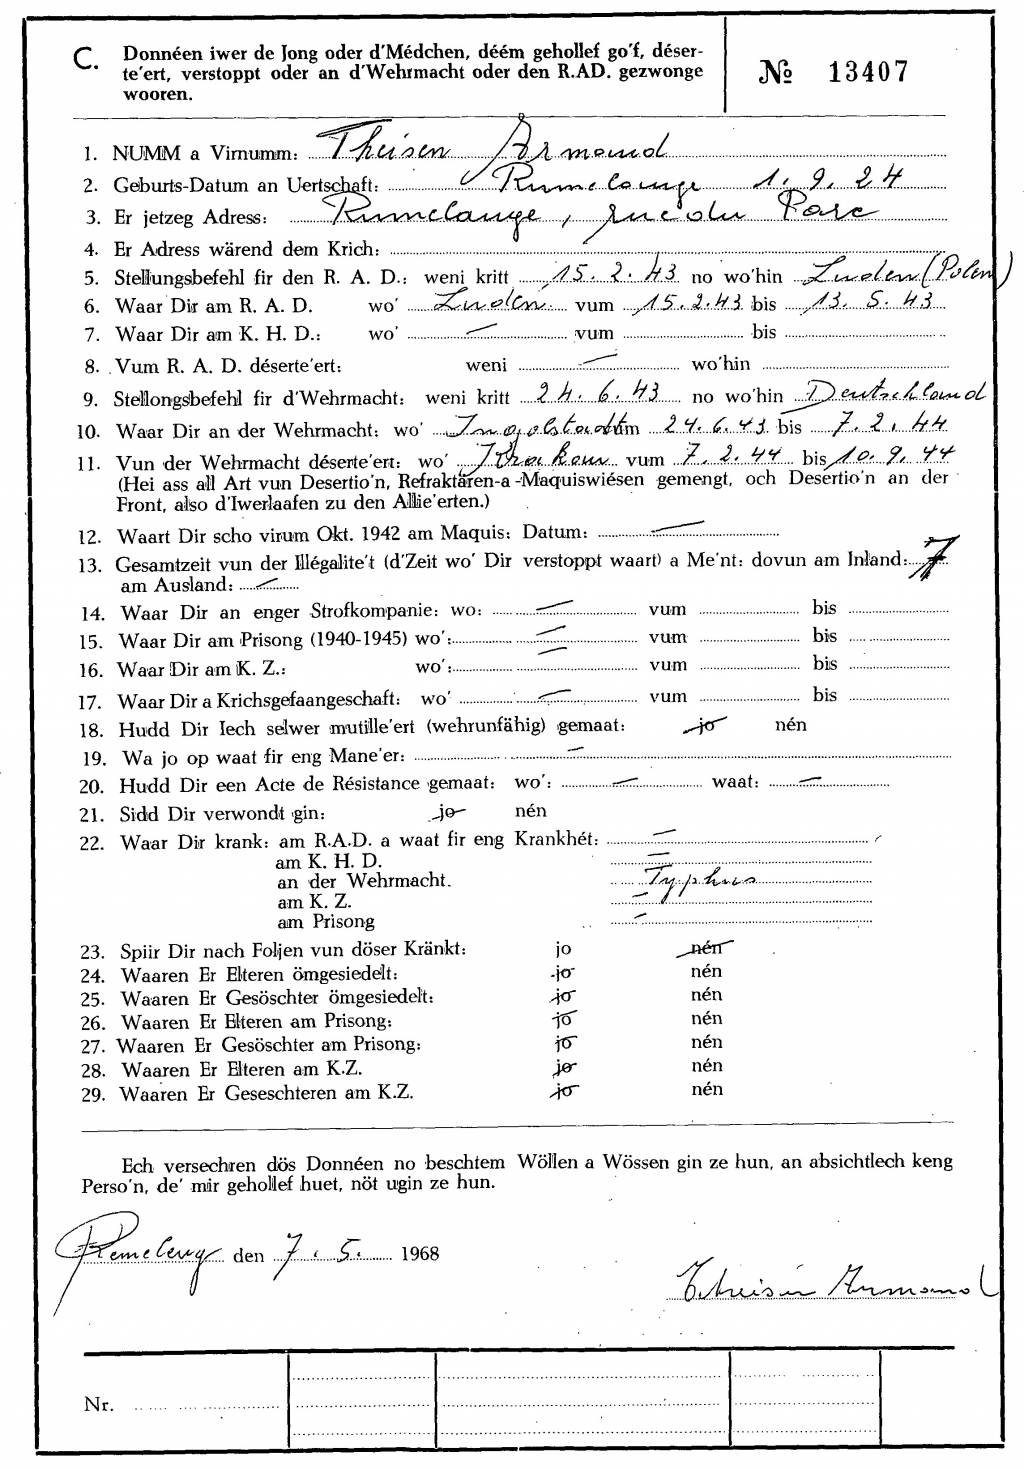 C. Donnéen iwer de Jong oder d'Médchen, déém gehollef go'f, déser-
te'ert, verstoppt oder an d'Wehrmacht oder den R.AD. gezwonge
wooren.
№ 13407
1. NUMM a Virnumm: Theisen Armand
2. Geburts-Datum an Uertschaft: Rumelange 1.9.24
3. Er jetzeg Adress: Rumelange, rue du Parc
4. Er Adress wärend dem Krich:
5. Stellungsbefehl fir den R. A. D.: weni kritt 15.2.43 no wo'hin Luden (Polen)
6. Waar Dir am R. A. D. wo' Luden vum 15.2.43 bis 13.5.43
7. Waar Dir am K. H. D.: wo' — vum bis
8. Vum R. A. D. déserte'ert: weni — wo'hin
9. Stellongsbefehl fir d'Wehrmacht: weni kritt 24.6.43 no wo'hin Deutschland
10. Waar Dir an der Wehrmacht: wo' Ingolstadt vum 24.6.43 bis 7.2.44
11. Vun der Wehrmacht déserte'ert: wo' Krakau vum 7.2.44 bis 10.9.44
(Hei ass all Art vun Desertio'n, Refraktären-a-Maquiswiésen gemengt, och Desertio'n an der
Front, also d'Iwerlaafen zu den Allie'erten.)
12. Waart Dir scho virum Okt. 1942 am Maquis: Datum: —
13. Gesamtzeit vun der Illégalite't (d'Zeit wo' Dir verstoppt waart) a Me'nt: dovun am Inland: 7
am Ausland: —
14. Waar Dir an enger Strofkompanie: wo: — vum bis
15. Waar Dir am Prisong (1940-1945) wo': — vum bis
16. Waar Dir am K. Z.: wo': — vum bis
17. Waar Dir a Krichsgefaangeschaft: wo' — vum bis
18. Hudd Dir Iech selwer mutille'ert (wehrunfähig) gemaat: jo nén
19. Wa jo op waat fir eng Mane'er: —
20. Hudd Dir een Acte de Résistance gemaat: wo': — waat: —
21. Sidd Dir verwondt gin: jo nén
22. Waar Dir krank: am R.A.D. a waat fir eng Krankhét: —
am K. H. D. —
an der Wehrmacht. Typhus
am K. Z. —
am Prisong —
23. Spiir Dir nach Foljen vun döser Kränkt: jo nén
24. Waaren Er Elteren ömgesiedelt: jo nén
25. Waaren Er Gesöschter ömgesiedelt: jo nén
26. Waaren Er Elteren am Prisong: jo nén
27. Waaren Er Gesöschter am Prisong: jo nén
28. Waaren Er Elteren am K.Z. jo nén
29. Waaren Er Geseschteren am K.Z. jo nén
Ech versechren dös Donnéen no beschtem Wöllen a Wössen gin ze hun, an absichtlech keng
Perso'n, de' mir gehollef huet, nöt ugin ze hun.
den 7.5. 1968
Theisen Armand
Nr.